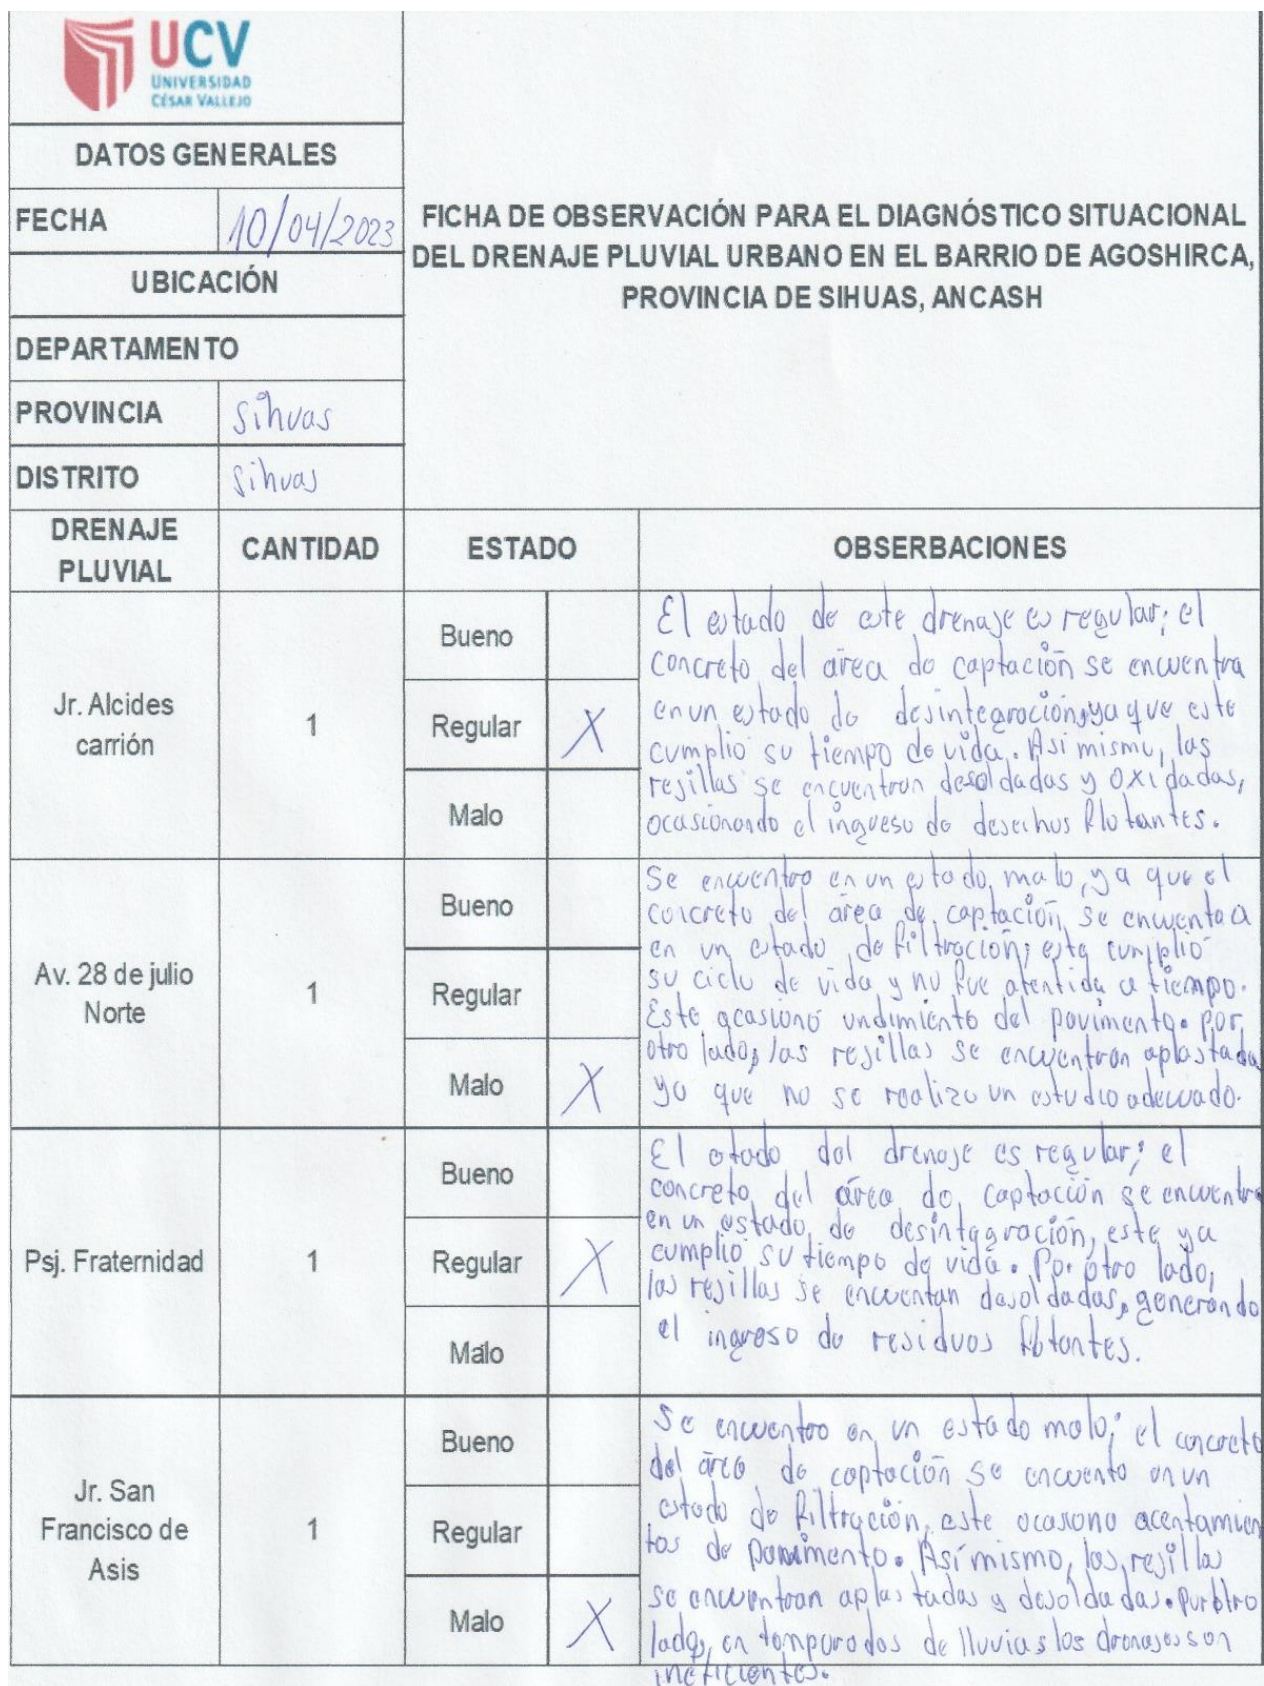 UCV
UNIVERSIDAD
CÉSAR VALLEJO
DATOS GENERALES
FECHA 10/04/2023
UBICACIÓN
DEPARTAMENTO
PROVINCIA Sihuas
DISTRITO Sihuas
FICHA DE OBSERVACIÓN PARA EL DIAGNÓSTICO SITUACIONAL
DEL DRENAJE PLUVIAL URBANO EN EL BARRIO DE AGOSHIRCA,
PROVINCIA DE SIHUAS, ANCASH
DRENAJE
PLUVIAL
CANTIDAD
ESTADO
OBSERBACIONES
Jr. Alcides
carrión
1
Bueno
Regular X
Malo
El estado de este drenaje es regular; el
concreto del área de captación se encuentra
en un estado de desintegración, ya que este
cumplio su tiempo de vida. Asi mismo, las
rejillas se encuentran desoldadas y oxidadas,
ocasionando el ingreso de desechos flotantes.
Av. 28 de julio
Norte
1
Bueno
Regular
Malo X
Se encuentra en un estado malo, ya que el
concreto del área de captación se encuentra
en un estado de filtración; esta cumplió
su ciclo de vida y no fue atentida a tiempo.
Esto ocasionó undimiento del pavimento. Por
otro lado, las rejillas se encuentran aplastada
ya que no se realizo un estudio adecuado.
Psj. Fraternidad
1
Bueno
Regular X
Malo
El estado del drenaje es regular; el
concreto del área de captación se encuentra
en un estado de desintegración, este ya
cumplio su tiempo de vida. Por otro lado,
las rejillas se encuentan desoldadas, generando
el ingreso de residuos flotantes.
Jr. San
Francisco de
Asis
1
Bueno
Regular
Malo X
Se encuentra en un estado malo; el concreto
del área de captación se encuenta en un
estado de filtración, este ocasiono acentamien
tos de pavimento. Así mismo, las rejillas
se encuentran aplastadas y desoldadas. Por otro
lado, en temporadas de lluvias los drenajes son
ineficientes.